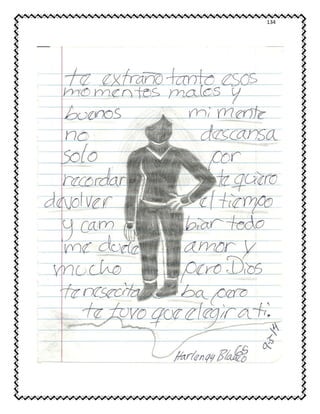 134
te extraño tanto esos
momentes males y
buenos mi mente
no descansa
solo por
recordar te quiero
devolver el tiempo
y cam biar todo
me duele amor y
mucho pero. Dios
te nesecita ba pero
te tuvo que elegir a ti.